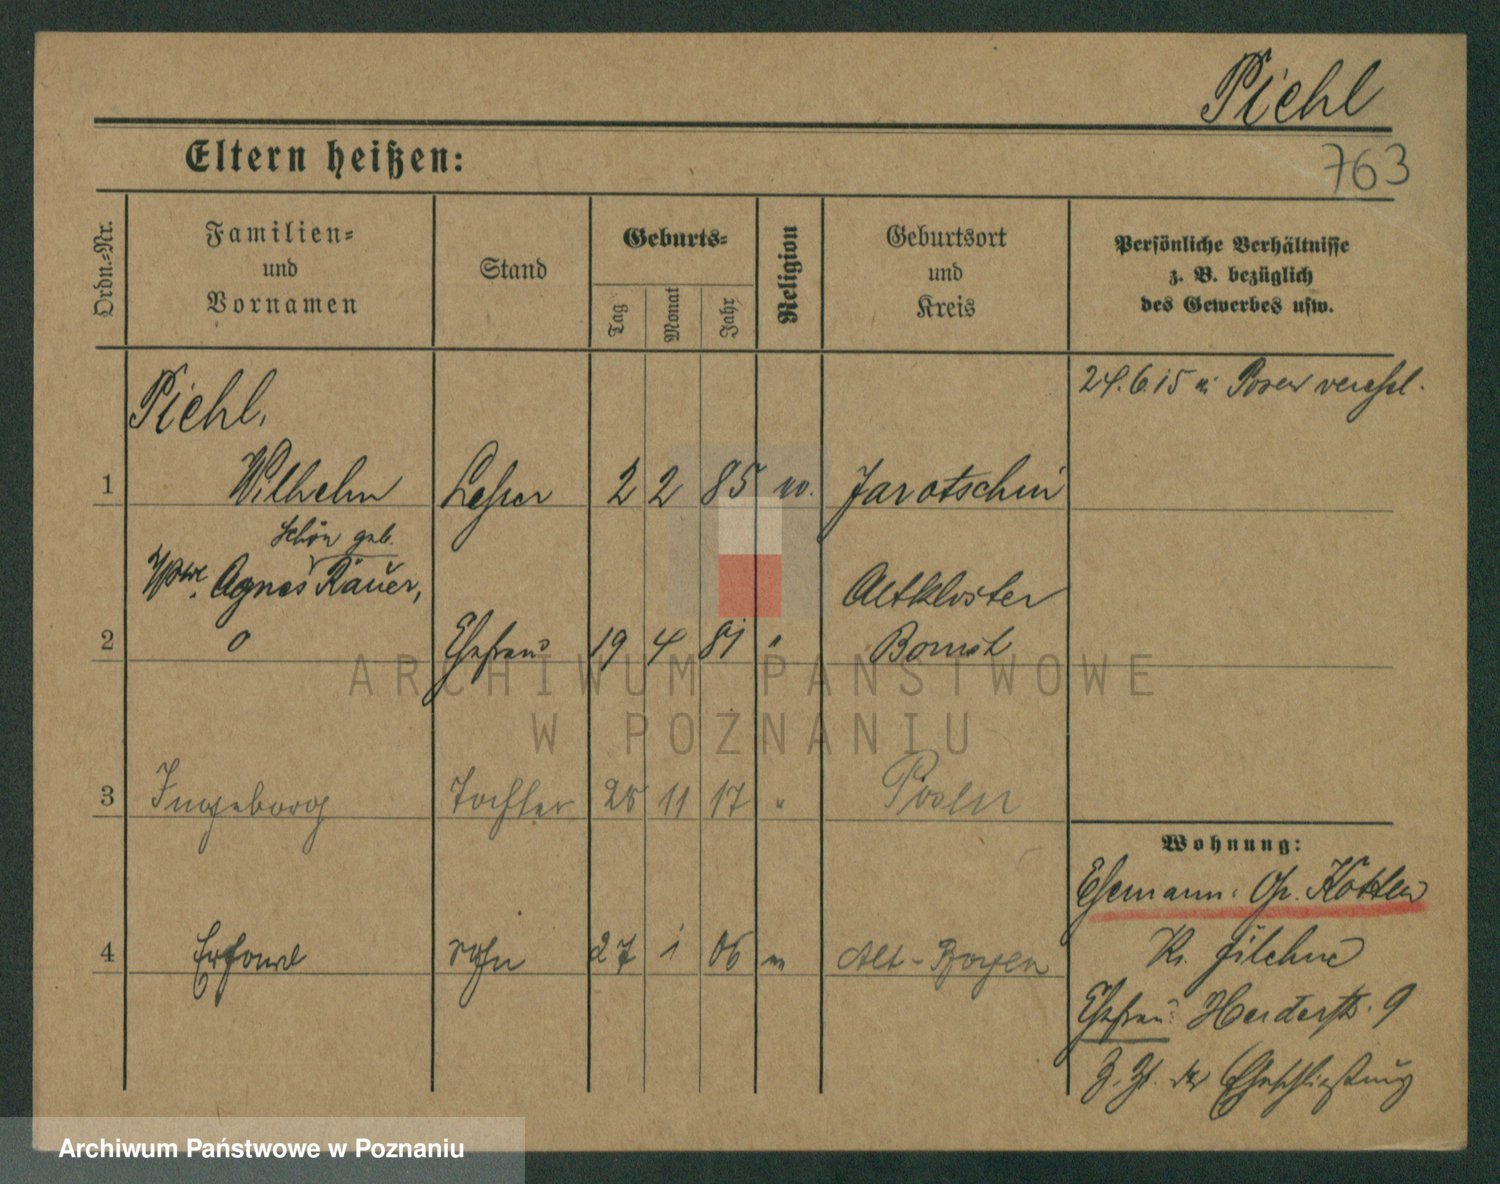 Piehl
Eltern heißen:
763
Ordn.=Nr.
Familien=
und
Vornamen
Stand
Geburts=
Tag
Monat
Jahr
Religion
Geburtsort
und
Kreis
Persönliche Verhältnisse
z. B. bezüglich
des Gewerbes usw.
24.6.15 in Posen verehel.
Piehl,
1 Wilhelm Lehrer 2 2 85 ev. Jarotschin
Schön geb.
Wwe. Agnes Räuer, Altkloster
2 Ehefrau 19 4 81 " Bomst
ARCHIWUM PAŃSTWOWE
W POZNANIU
3 Ingeborg Tochter 25 11 17 " Posen
Wohnung:
Ehemann: Gr. Kotten
4 Sohn 27 1 06 Alt-
Kr. Filehne
Ehefrau: Herderstr. 9
z. Zt. der Eheschließung
Archiwum Państwowe w Poznaniu